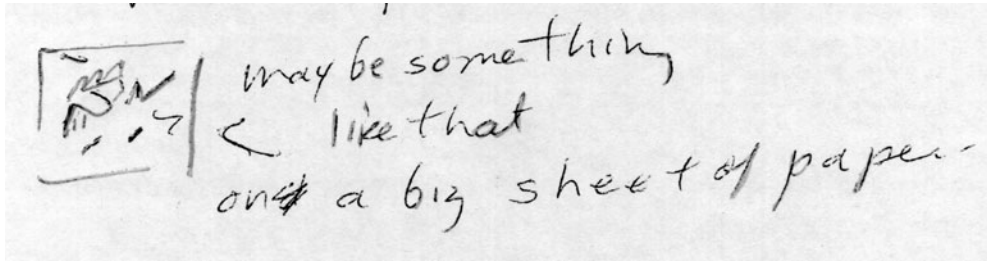 maybe something
< like that
on a big sheet of paper.